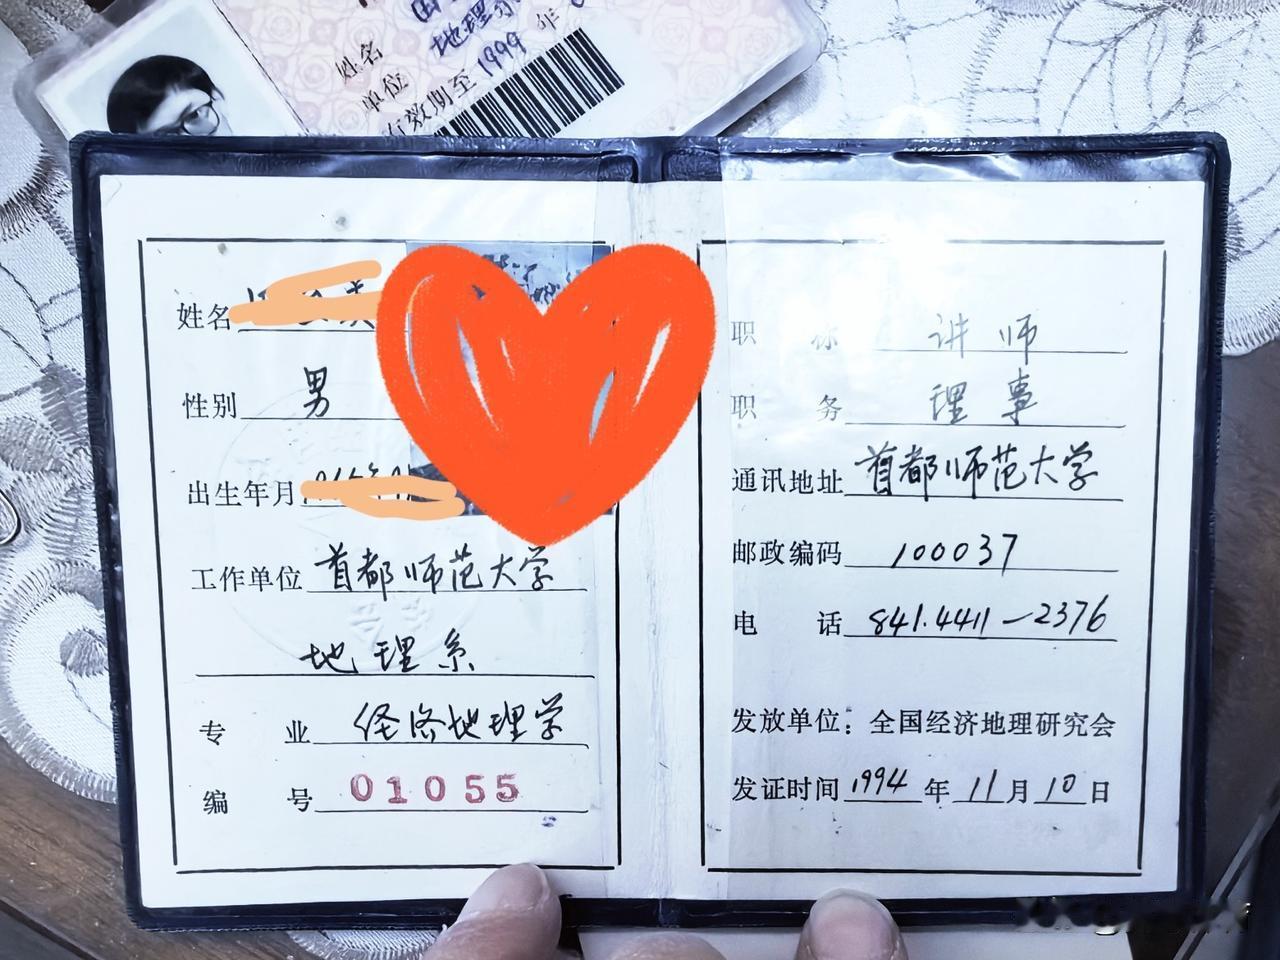 姓名
单位 地理系
有效期至 1999 年
姓名
性别 男
出生年月
工作单位 首都师范大学
地理系
专 业 经济地理学
编 号 01055
职 称 讲师
职 务 理事
通讯地址 首都师范大学
邮政编码 100037
电 话 841.4411-2376
发放单位：全国经济地理研究会
发证时间 1994 年 11 月 10 日